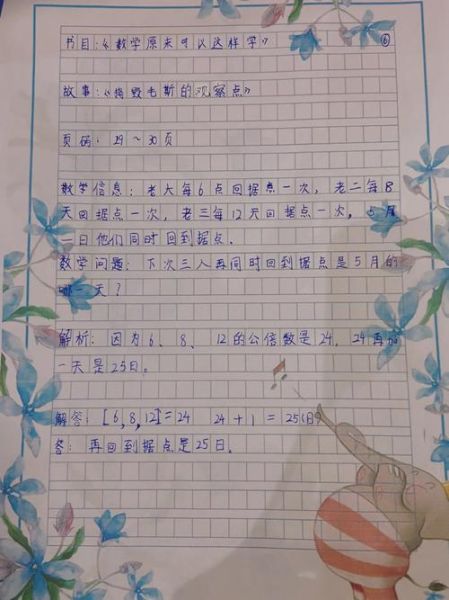 书目:《数学原来可以这样学》 ⑥
故事:《捣毁毛斯的观察点》
页码:29~30页
数学信息:老大每6点回据点一次,老二每8
天回据点一次,老三每12天回据点一次,5月
一日他们同时回到据点.
数学问题:下次三人再同时回到据点是5月的
哪一天?
解析:因为6、8、12的公倍数是24,24再加
一天是25日.
解答:[6,8,12]=24 24+1=25(日)
答:再回到据点是25日.